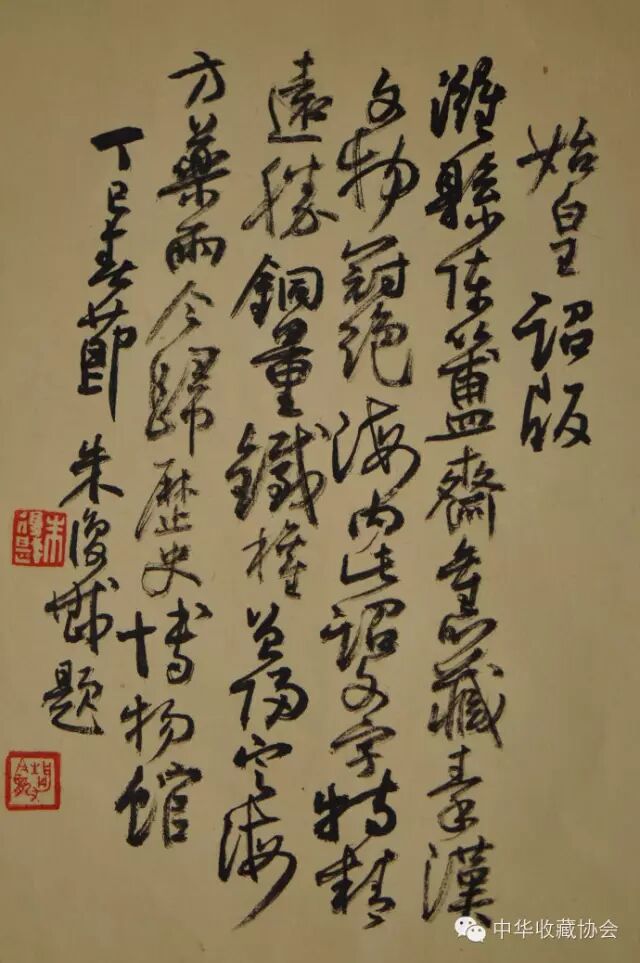 始皇詔版
濰縣陳簠齋舊藏秦漢
文物冠絕海內此詔文字特精
遠勝銅量鐵權曾歸定海
方藥雨今歸歷史博物館
丁巳春節 朱復戡題
中华收藏协会